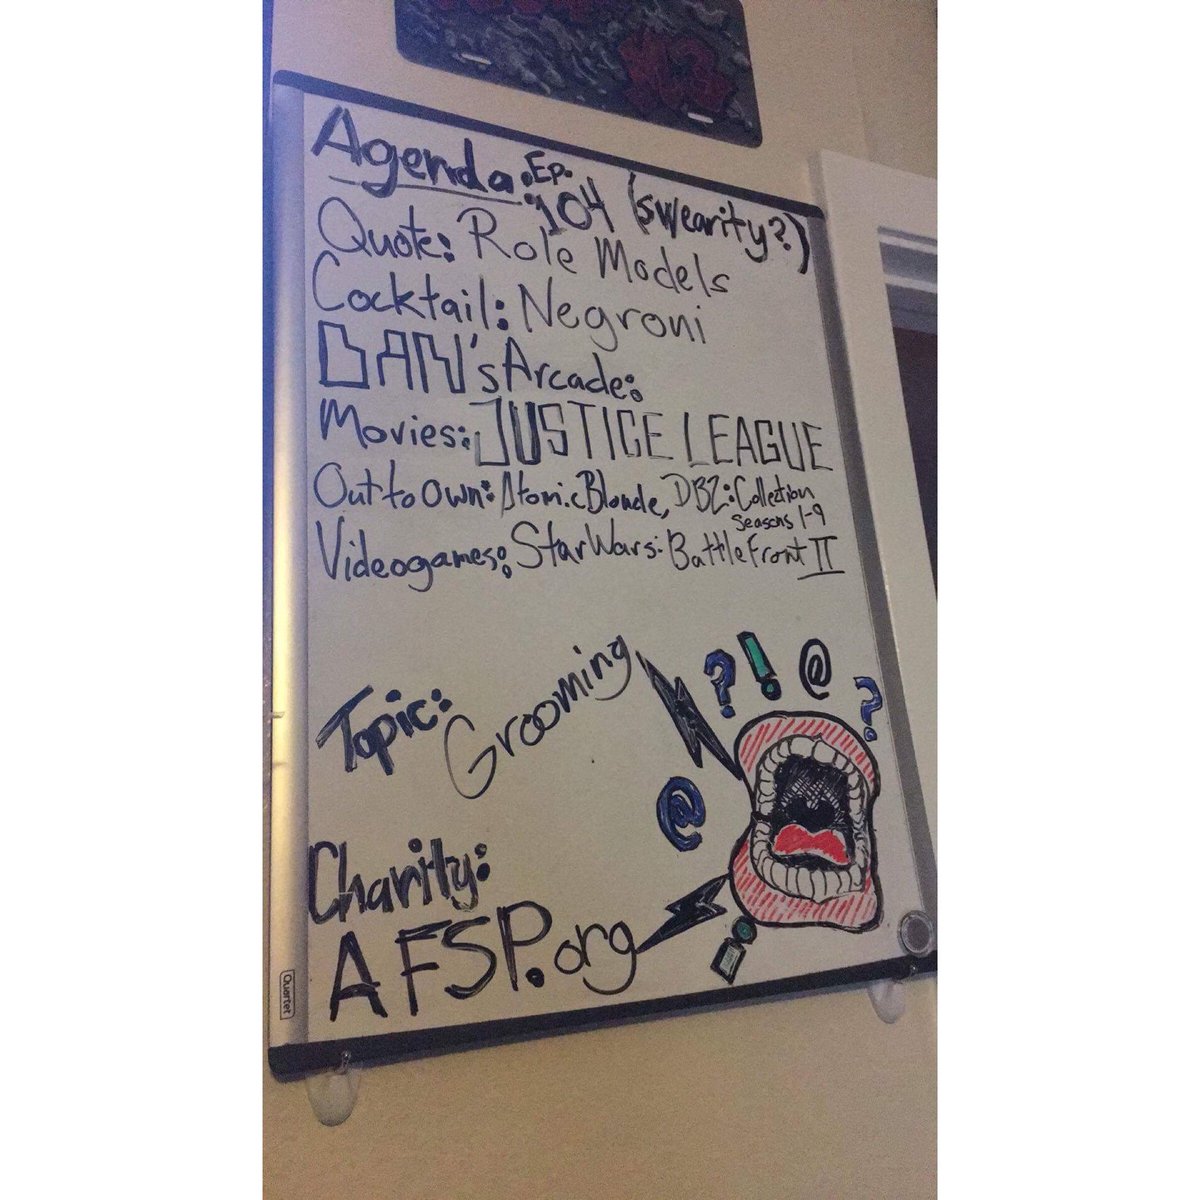 Agenda: Ep. 104 (swearity?)
Quote: Role Models
Cocktail: Negroni
DAN's Arcade:
Movies: JUSTICE LEAGUE
Out to Own: Atomic Blonde, DBZ: Collection
Seasons 1-9
Videogames: Star Wars: Battlefront II
Topic: Grooming
? ! @ ?
@
Charity:
AFSP.org
!
Quartet